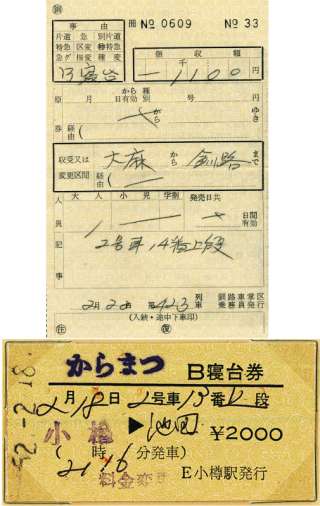 冊 № 0609 № 33
事由
領収額
片道 急 別片道
特急 区変 特急
急グ 指変 種変
B寝台
千
1100 円
原 月 日有効 から 種別 号
から ゆき
券 経由(
収受又は変更区間
大麻 から 釧路 まで
経由(
人員
大人 小児 学割 発売日共
1
日間有効
記事
2号車 14番上段
2月22日 第423列車
釧路車掌区乗務員発行
(入鋏・途中下車印)
往 復
からまつ B寝台券
2月18日 2号車13番 段
小樽 ▶ 池田 ¥2000
(21時16分発車)
料金変更
E小樽駅発行
52.-2.18.